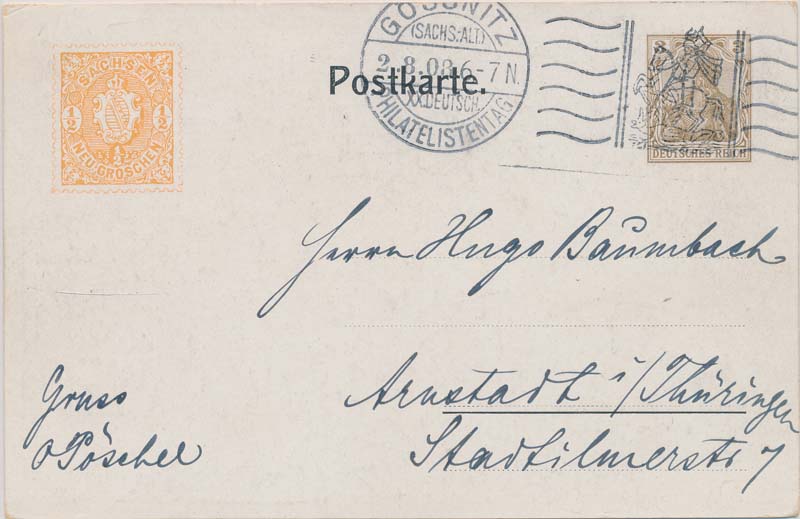 SACHSEN
½ ½
½
NEU-GROSCHEN
GÖSSNITZ
(SACHS:-ALT.)
2.8.08.6-7N.
XX.DEUTSCH.
PHILATELISTENTAG
Postkarte.
3 3
DEUTSCHES REICH
Herrn Hugo Baumbach
Arnstadt i/Thüringen
Stadtilmerstr 7
Gruss
Pöschel